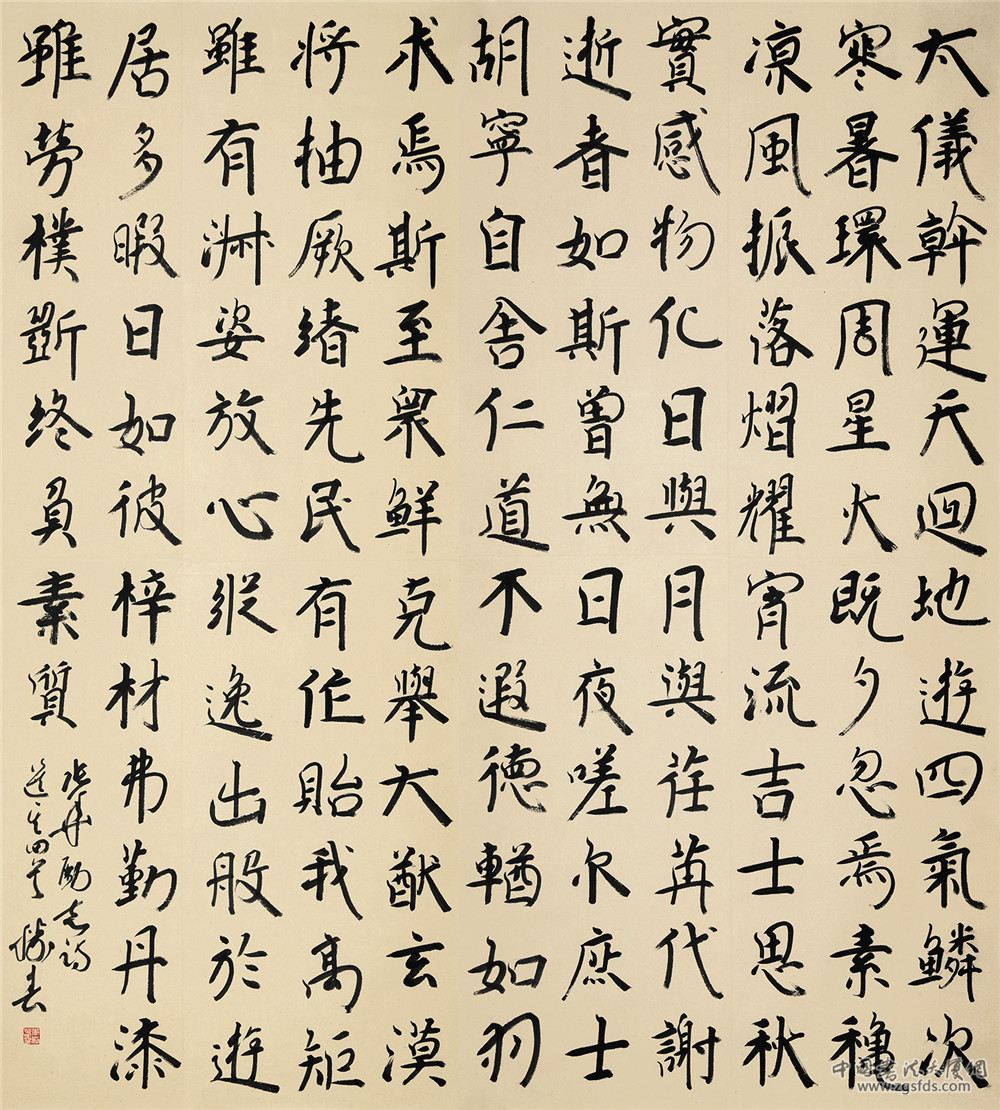 太儀幹運天迴地遊四氣鱗次
寒暑環周星火既夕忽焉素穐
凉風振落熠耀宵流吉士思秋
實感物化日與月與荏苒代謝
逝者如斯曾無日夜嗟尔庶士
胡寧自舍仁道不遐德輶如羽
求焉斯至眾鮮克舉大猷玄漠
將抽厥緒先民有作貽我高矩
雖有淑姿放心縱逸出般於遊
居多暇日如彼梓材弗勤丹漆
雖勞樸斲終負素質
張華勵志詩
中国書法大厦網
www.zgsfds.com